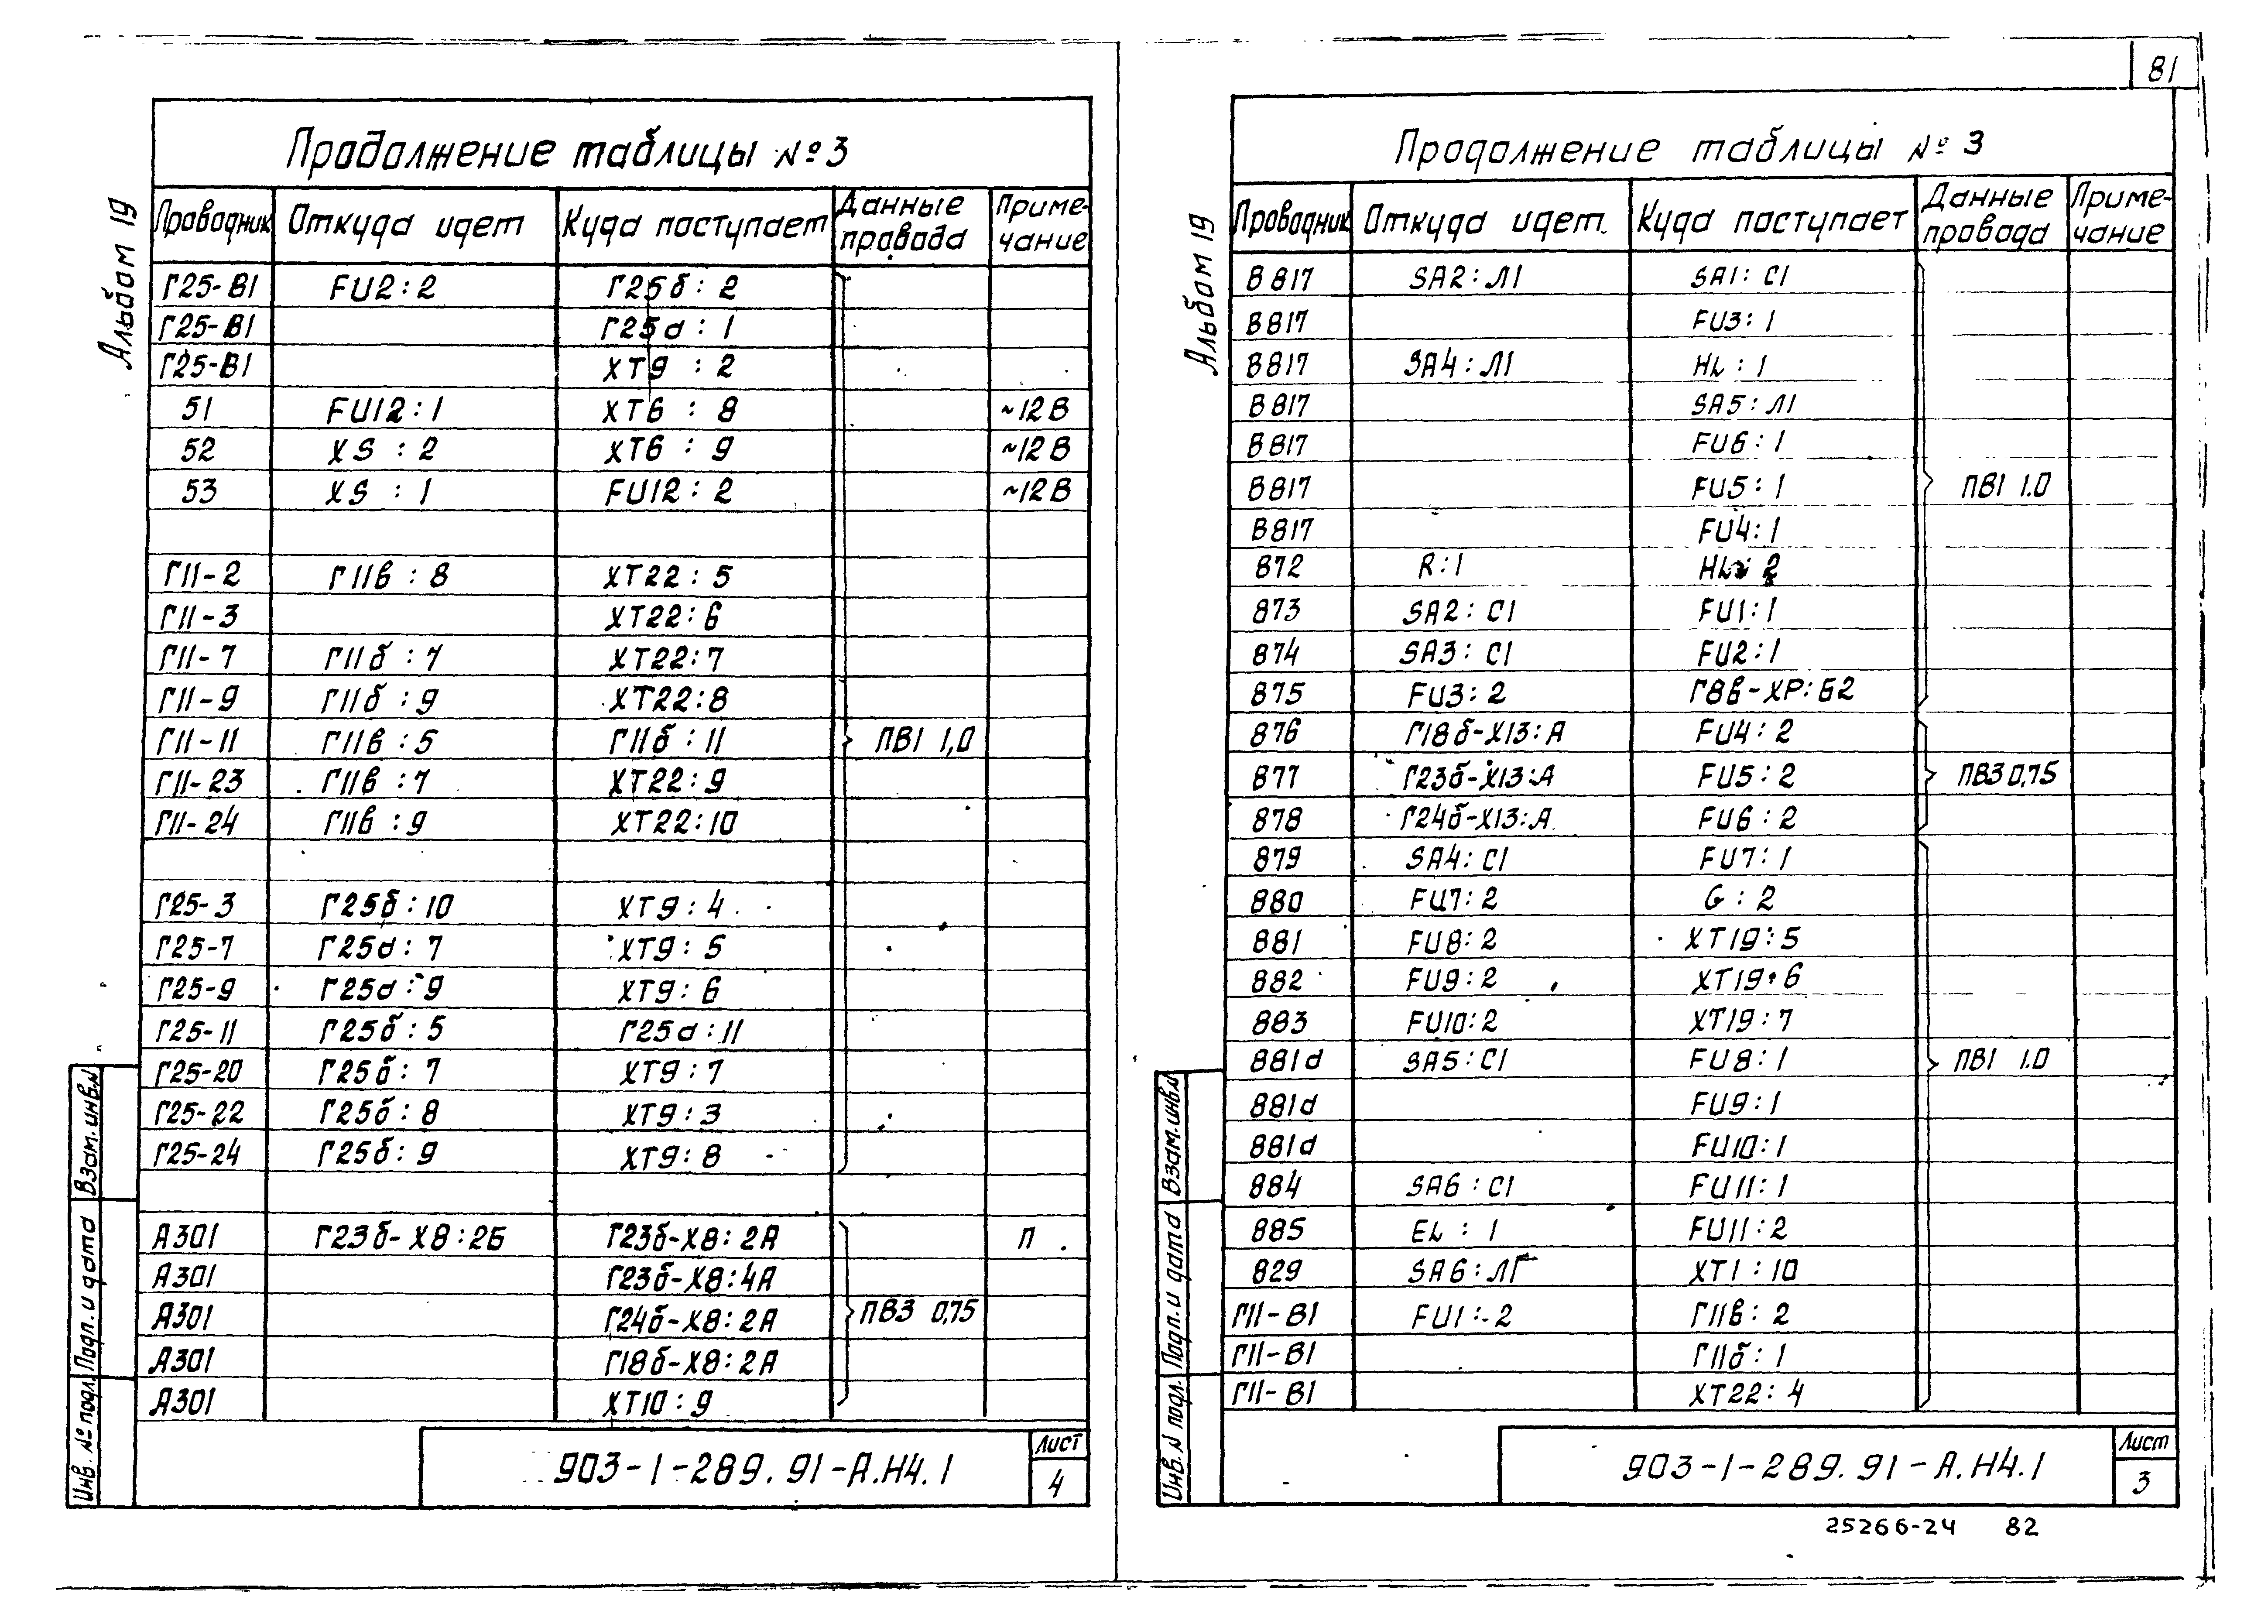 81
Альбом 19
Продолжение таблицы №3
Проводник Откуда идет Куда поступает Данные провода Примечание
Г25-В1 FU2:2 Г25б:2
Г25-В1 Г25д:1
Г25-В1 ХТ9:2
51 FU12:1 ХТ6:8 ~12В
52 XS:2 ХТ6:9 ~12В
53 XS:1 FU12:2 ~12В
Г11-2 Г11в:8 ХТ22:5
Г11-3 ХТ22:6
Г11-7 Г11б:7 ХТ22:7
Г11-9 Г11б:9 ХТ22:8
Г11-11 Г11в:5 Г11б:11 ПВ1 1,0
Г11-23 Г11в:7 ХТ22:9
Г11-24 Г11в:9 ХТ22:10
Г25-3 Г25б:10 ХТ9:4
Г25-7 Г25д:7 ХТ9:5
Г25-9 Г25д:9 ХТ9:6
Г25-11 Г25б:5 Г25д:11
Г25-20 Г25б:7 ХТ9:7
Г25-22 Г25б:8 ХТ9:3
Г25-24 Г25б:9 ХТ9:8
А301 Г23б-Х8:2Б Г23б-Х8:2А П
А301 Г23б-Х8:4А
А301 Г24б-Х8:2А ПВ3 0,75
А301 Г18б-Х8:2А
А301 ХТ10:9
Взам. инв.№
Подп. и дата
Инв. № подл.
903-1-289.91-А.Н4.1
Лист
4
Альбом 19
Продолжение таблицы №3
Проводник Откуда идет. Куда поступает Данные провода Примечание
В817 SA2:Л1 SA1:С1
В817 FU3:1
В817 SA4:Л1 HL:1
В817 SA5:Л1
В817 FU6:1
В817 FU5:1 ПВ1 1.0
В817 FU4:1
872 R:1 HL:2
873 SA2:С1 FU1:1
874 SA3:С1 FU2:1
875 FU3:2 Г8в-ХР:Б2
876 Г18б-Х13:А FU4:2
877 Г23б-Х13:А FU5:2 ПВ3 0,75
878 Г24б-Х13:А FU6:2
879 SA4:С1 FU7:1
880 FU7:2 G:2
881 FU8:2 ХТ19:5
882 FU9:2 ХТ19:6
883 FU10:2 ХТ19:7
881д SA5:С1 FU8:1 ПВ1 1.0
881д FU9:1
881д FU10:1
884 SA6:С1 FU11:1
885 EL:1 FU11:2
829 SA6:Л1 ХТ1:10
Г11-В1 FU1:2 Г11в:2
Г11-В1 Г11б:1
Г11-В1 ХТ22:4
Взам. инв.№
Подп. и дата
Инв. № подл.
903-1-289.91-А.Н4.1
Лист
3
25266-24 82